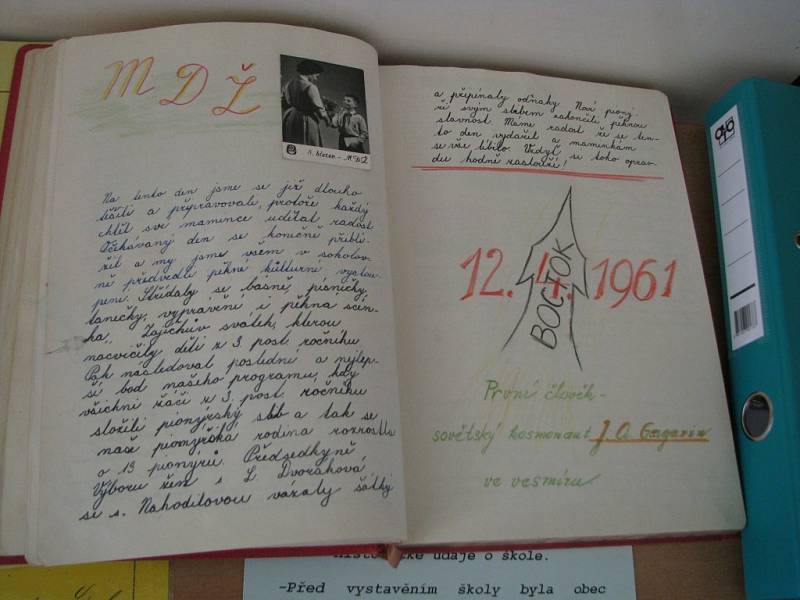 M D Ž
8. březen - MDŽ
Na tento den jsme se již dlouho
těšili a připravovali, protože každý
chtěl své mamince udělat radost.
Očekávaný den se konečně přiblí-
žil a my jsme všem v sokolov-
ně předvedli pěkné kulturní vystou-
pení. Střídaly se básně, písničky,
tanečky, vyprávění i pěkná scén-
ka, Zajíčkův svátek, kterou
nacvičily děti z 3. post. ročníku
Pak následoval poslední a nejlep-
ší bod našeho programu, kdy
všichni žáci z 3. post. ročníku
složili pionýrský slib a tak se
naše pionýrská rodina rozrostla
o 13 pionýrů. Předsedkyně
Výboru žen s. L. Dvořáková
se s. Nahodilovou vázaly šátky
a připínaly odznaky. Noví pioný-
ři svým slibem zakončili pěknou
slavnost. Máme radost že se ten-
to den vydařil a maminkám
se vše líbilo. Vždyť si toho oprav-
du hodně zaslouží!
12. 4. 1961
ВОСТОК
První člověk -
sovětský kosmonaut J. A. Gagarin
ve vesmíru
údaje o škole.
-Před vystavěním školy byla obec